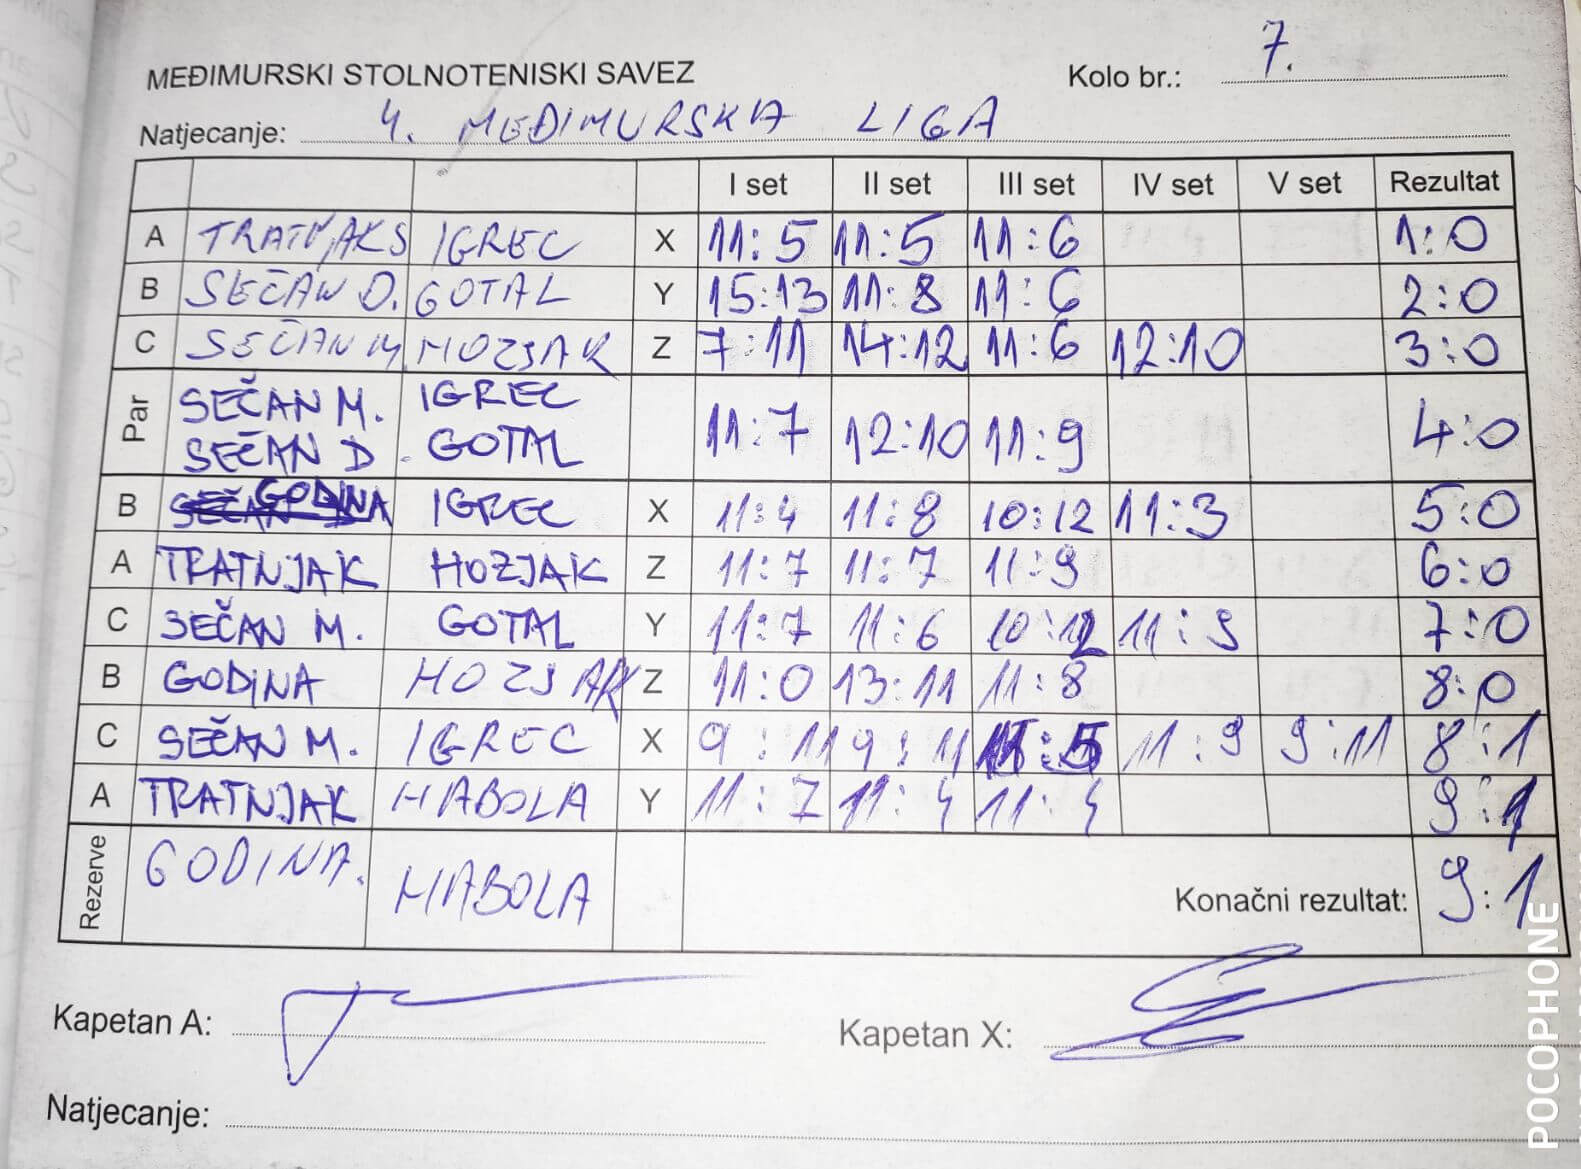 MEĐIMURSKI STOLNOTENISKI SAVEZ Kolo br.: 7.
Natjecanje: 4. MEĐIMURSKA LIGA
I set II set III set IV set V set Rezultat
A TRATNJAK S IGREC X 11:5 11:5 11:6 1:0
B SEČAN D. GOTAL Y 15:13 11:8 11:6 2:0
C SEČAN M. HOZJAK Z 7:11 14:12 11:6 12:10 3:0
Par SEČAN M. IGREC 11:7 12:10 11:9 4:0
SEČAN D. GOTAL
B GODINA IGREC X 11:4 11:8 10:12 11:3 5:0
A TRATNJAK HOZJAK Z 11:7 11:7 11:9 6:0
C SEČAN M. GOTAL Y 11:7 11:6 10:12 11:9 7:0
B GODINA HOZJAK Z 11:0 13:11 11:8 8:0
C SEČAN M. IGREC X 9:11 9:11 11:5 11:9 9:11 8:1
A TRATNJAK HABOLA Y 11:7 11:4 11:4 9:1
Rezerve GODINA. HABOLA Konačni rezultat: 9:1
Kapetan A: Kapetan X:
Natjecanje:
POCOPHONE